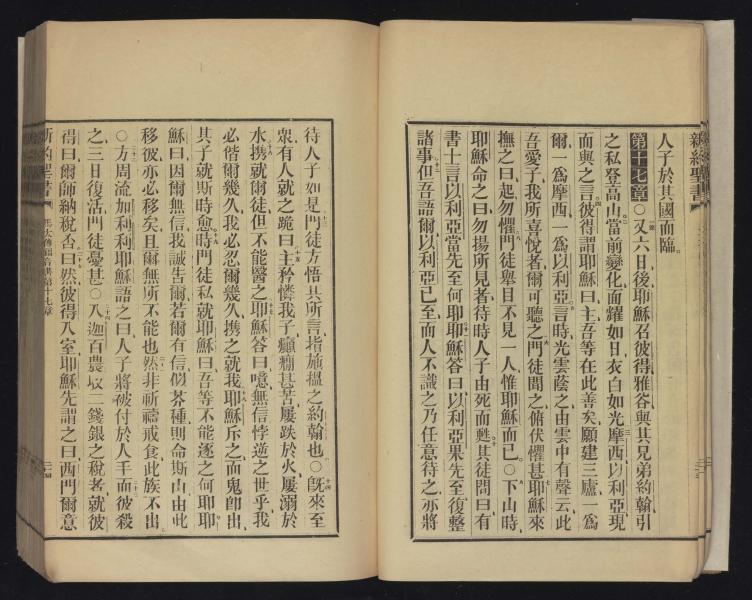 新約聖書
人子於其國而臨。
第十七章○又六日後、耶穌召彼得雅各與其兄弟約翰引
之私登高山、當前變化、面耀如日、衣白如光、摩西以利亞現
而與之言、彼得謂耶穌曰、主、吾等在此善矣、願建三廬、一爲
爾、一爲摩西、一爲以利亞、言時光雲蔭之、由雲中有聲云、此
吾愛子、我所喜悅者、爾可聽之、門徒聞之、俯伏懼甚、耶穌來
撫之曰、起、勿懼、門徒舉目不見一人、惟耶穌而已。○下山時、
耶穌命之曰、勿揚所見者、待時人子由死而甦、其徒問曰、有
書士言以利亞當先至何耶、耶穌答曰、以利亞果先至復整
諸事、但吾語爾、以利亞已至、而人不識之、乃任意待之、亦將
待人子如是、門徒方悟其所言、指施搵之約翰也○旣來至
衆、有人就之跪曰、主矜憐我子、癲癇甚苦、屢跌於火、屢溺於
水、携就爾徒、但不能醫之、耶穌答曰、噫、無信悖逆之世乎、我
必偕爾幾久、我必忍爾幾久、携之就我、耶穌斥之、而鬼卽出、
其子就斯時愈、時門徒私就耶穌曰、吾等不能逐之何耶、耶
穌曰、因爾無信、我誠告爾、若爾有信似芥種、則命斯山由此
移彼、亦必移矣、且爾無所不能也、然非祈禱戒食、此族不出
○方周流加利利、耶穌語之曰、人子將被付於人手、而彼殺
之、三日復活、門徒憂甚○入迦百農、收二錢銀之稅者、就彼
得曰、爾師納稅否、曰然、彼得入室、耶穌先謂之曰、西門爾意
新約聖書 馬太傳福音書第十七章